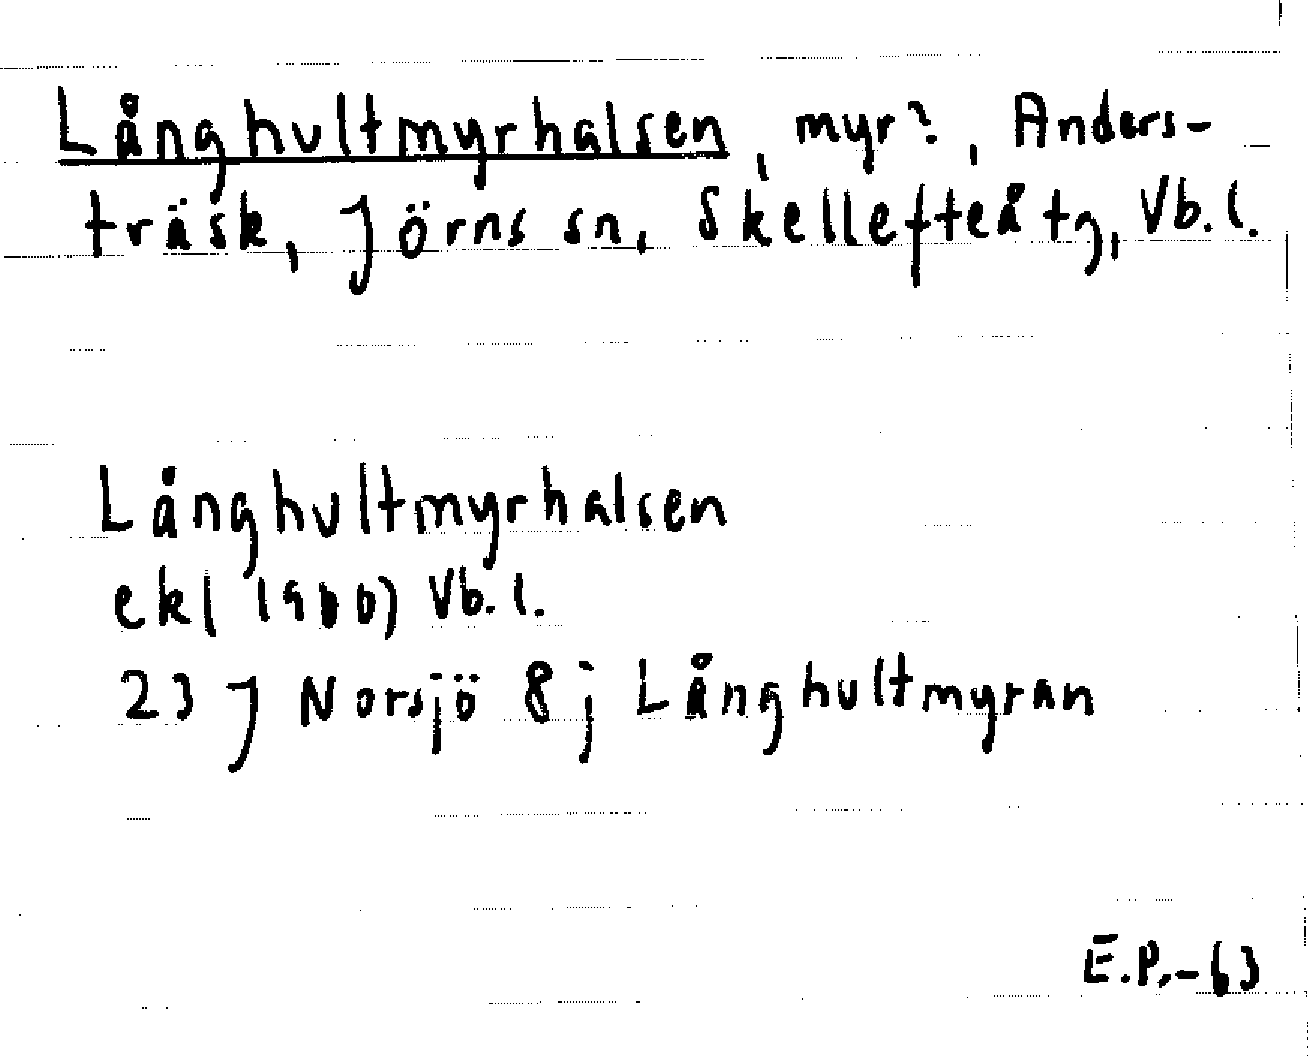 Långhultmyrhalsen, myr?, Anders-
träsk, Jörns sn, Skellefteå tg, Vb. l.
Långhultmyrhalsen
ek( 1900) Vb. l.
23 J Norsjö 8 j Långhultmyran
E.P.-63